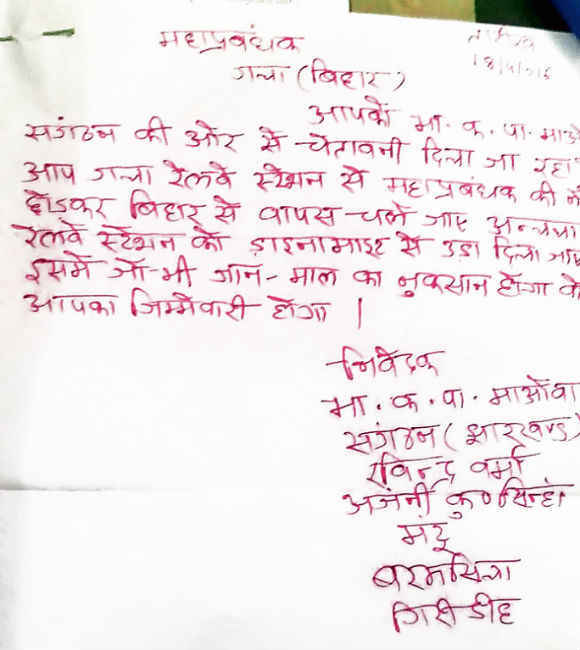 महाप्रबंधक
गया (बिहार)
आपको भा. क. पा. माओ
संगठन की ओर से चेतावनी दिया जा रहा
आप गया रेलवे स्टेशन से महाप्रबंधक की
छोड़कर बिहार से वापस चले जाए अन्यथा
रेलवे स्टेशन को डाइनामाइट से उड़ा दिया जाए
इसमें जो-भी जान-माल का नुकसान होगा
आपका जिम्मेवारी होगा |
निवेदक
भा. क. पा. माओवा
संगठन (झारखण्ड)
रविन्द्र वर्मा
अजंनी कु० सिन्हा
मंटू
बरमसिया
गिरीडीह